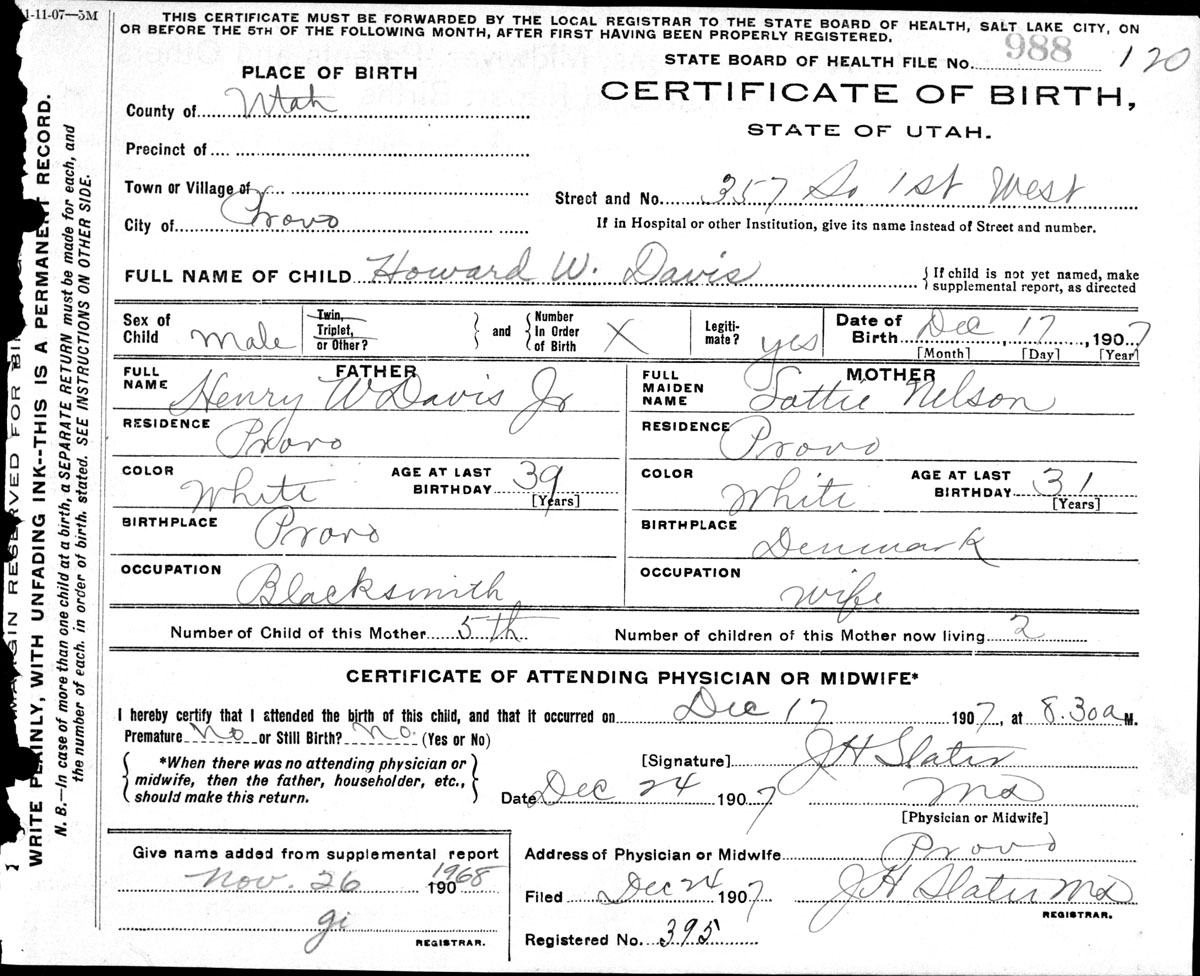 1-11-07—5M
THIS CERTIFICATE MUST BE FORWARDED BY THE LOCAL REGISTRAR TO THE STATE BOARD OF HEALTH, SALT LAKE CITY, ON
OR BEFORE THE 5TH OF THE FOLLOWING MONTH, AFTER FIRST HAVING BEEN PROPERLY REGISTERED.
STATE BOARD OF HEALTH FILE No. 988 120
PLACE OF BIRTH
CERTIFICATE OF BIRTH,
STATE OF UTAH.
County of Utah
Precinct of
Town or Village of
Street and No. 357 So 1st West
City of Provo
If in Hospital or other Institution, give its name instead of Street and number.
FULL NAME OF CHILD Howard W. Davis
{If child is not yet named, make
supplemental report, as directed
Sex of Child Male
Twin, Triplet, or Other? } and { Number In Order of Birth X
Legiti-mate? yes
Date of Birth Dec 17, 1907
[Month] [Day] [Year]
FATHER
FULL NAME Henry W Davis Jr
MOTHER
FULL MAIDEN NAME Lottie Nelson
RESIDENCE Provo
RESIDENCE Provo
COLOR White AGE AT LAST BIRTHDAY 39 [Years]
COLOR White AGE AT LAST BIRTHDAY 31 [Years]
BIRTHPLACE Provo
BIRTHPLACE Denmark
OCCUPATION Blacksmith
OCCUPATION wife
Number of Child of this Mother 5th Number of children of this Mother now living 2
CERTIFICATE OF ATTENDING PHYSICIAN OR MIDWIFE*
I hereby certify that I attended the birth of this child, and that it occurred on Dec 17 1907, at 8.30a M.
Premature No or Still Birth? No. (Yes or No)
{ *When there was no attending physician or
midwife, then the father, householder, etc.,
should make this return. }
[Signature] J H Slater
Date Dec 24 1907 MD
[Physician or Midwife]
Give name added from supplemental report
Nov. 26 190 1968
gi
REGISTRAR.
Address of Physician or Midwife Provo
Filed Dec 24 1907 J H Slater MD
REGISTRAR.
Registered No. 395
MARGIN RESERVED FOR
WRITE PLAINLY, WITH UNFADING INK--THIS IS A PERMANENT RECORD.
N. B.—In case of more than one child at a birth, a SEPARATE RETURN must be made for each, and
the number of each, in order of birth, stated. SEE INSTRUCTIONS ON OTHER SIDE.